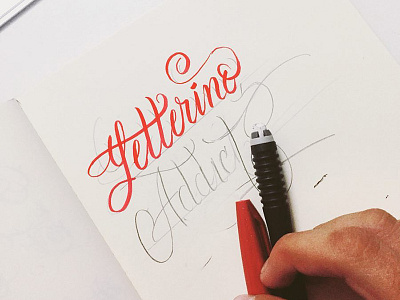 Letterino
Addict